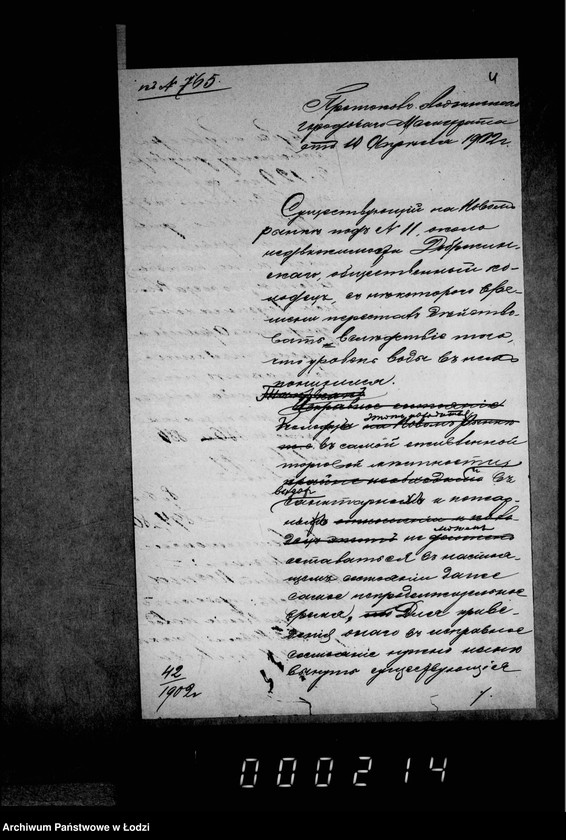 къ № 765.
4
Протоколъ Лодзинскаго
городоваго Магистрата
отъ 10 Апрѣля 1902 г.
Существующій на Новомъ
рынкѣ подъ № 11, около
недвижимости Добржин-
скаго, общественный ко-
лодецъ, съ нѣкотораго вре-
мени пересталъ дѣйство-
вать, вслѣдствіе того,
что уровень воды въ немъ
понизился.
Исправное состояніе
Колодца на Новомъ Рынкѣ
въ самой оживленной
торговой мѣстности
крайне необходимо въ
санитарномъ и пожар-
номъ
не можетъ
оставаться въ настоя-
щемъ состояніи даже
самое непродолжительное
время, Для приве-
денія онаго въ исправное
состояніе нужно
вынуть существующія
42
1902 г
1.
000214
Archiwum Państwowe w Łodzi